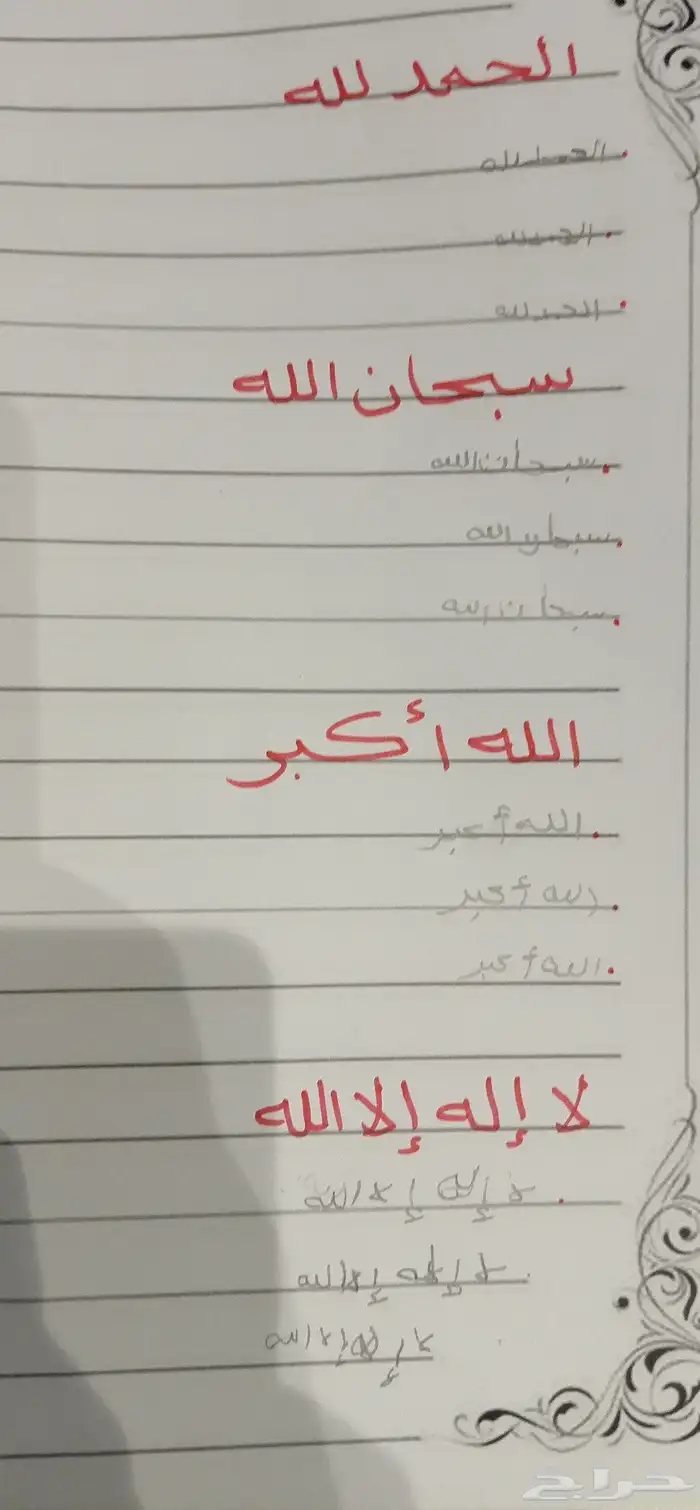 الحمد لله
الحمد لله
الحمد لله
الحمد لله
سبحان الله
سبحان الله
سبحان الله
سبحان الله
الله أكبر
الله أكبر
الله أكبر
الله أكبر
لا إله إلا الله
لا إله إلا الله
لا إله إلا الله
لا إله إلا الله
حراج